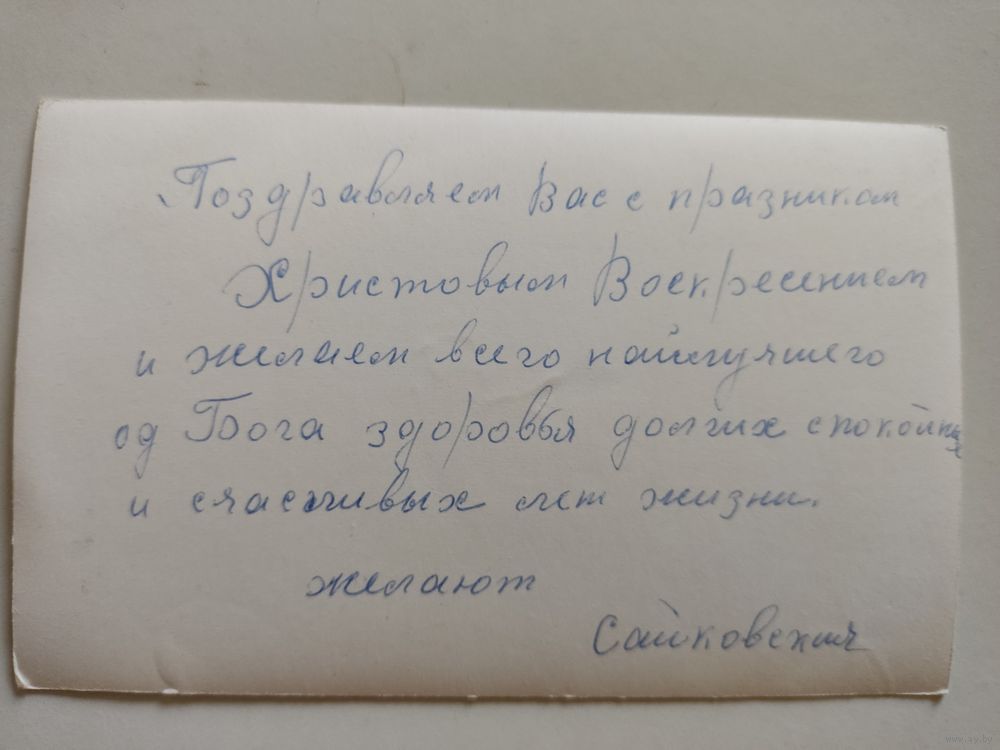 Поздравляем Вас с празником
Христовым Воскресением
и желаем всего найлучшего
од Бога здоровья долгих спокойных
и счасливых лет жизни.
желают
www.ay.by